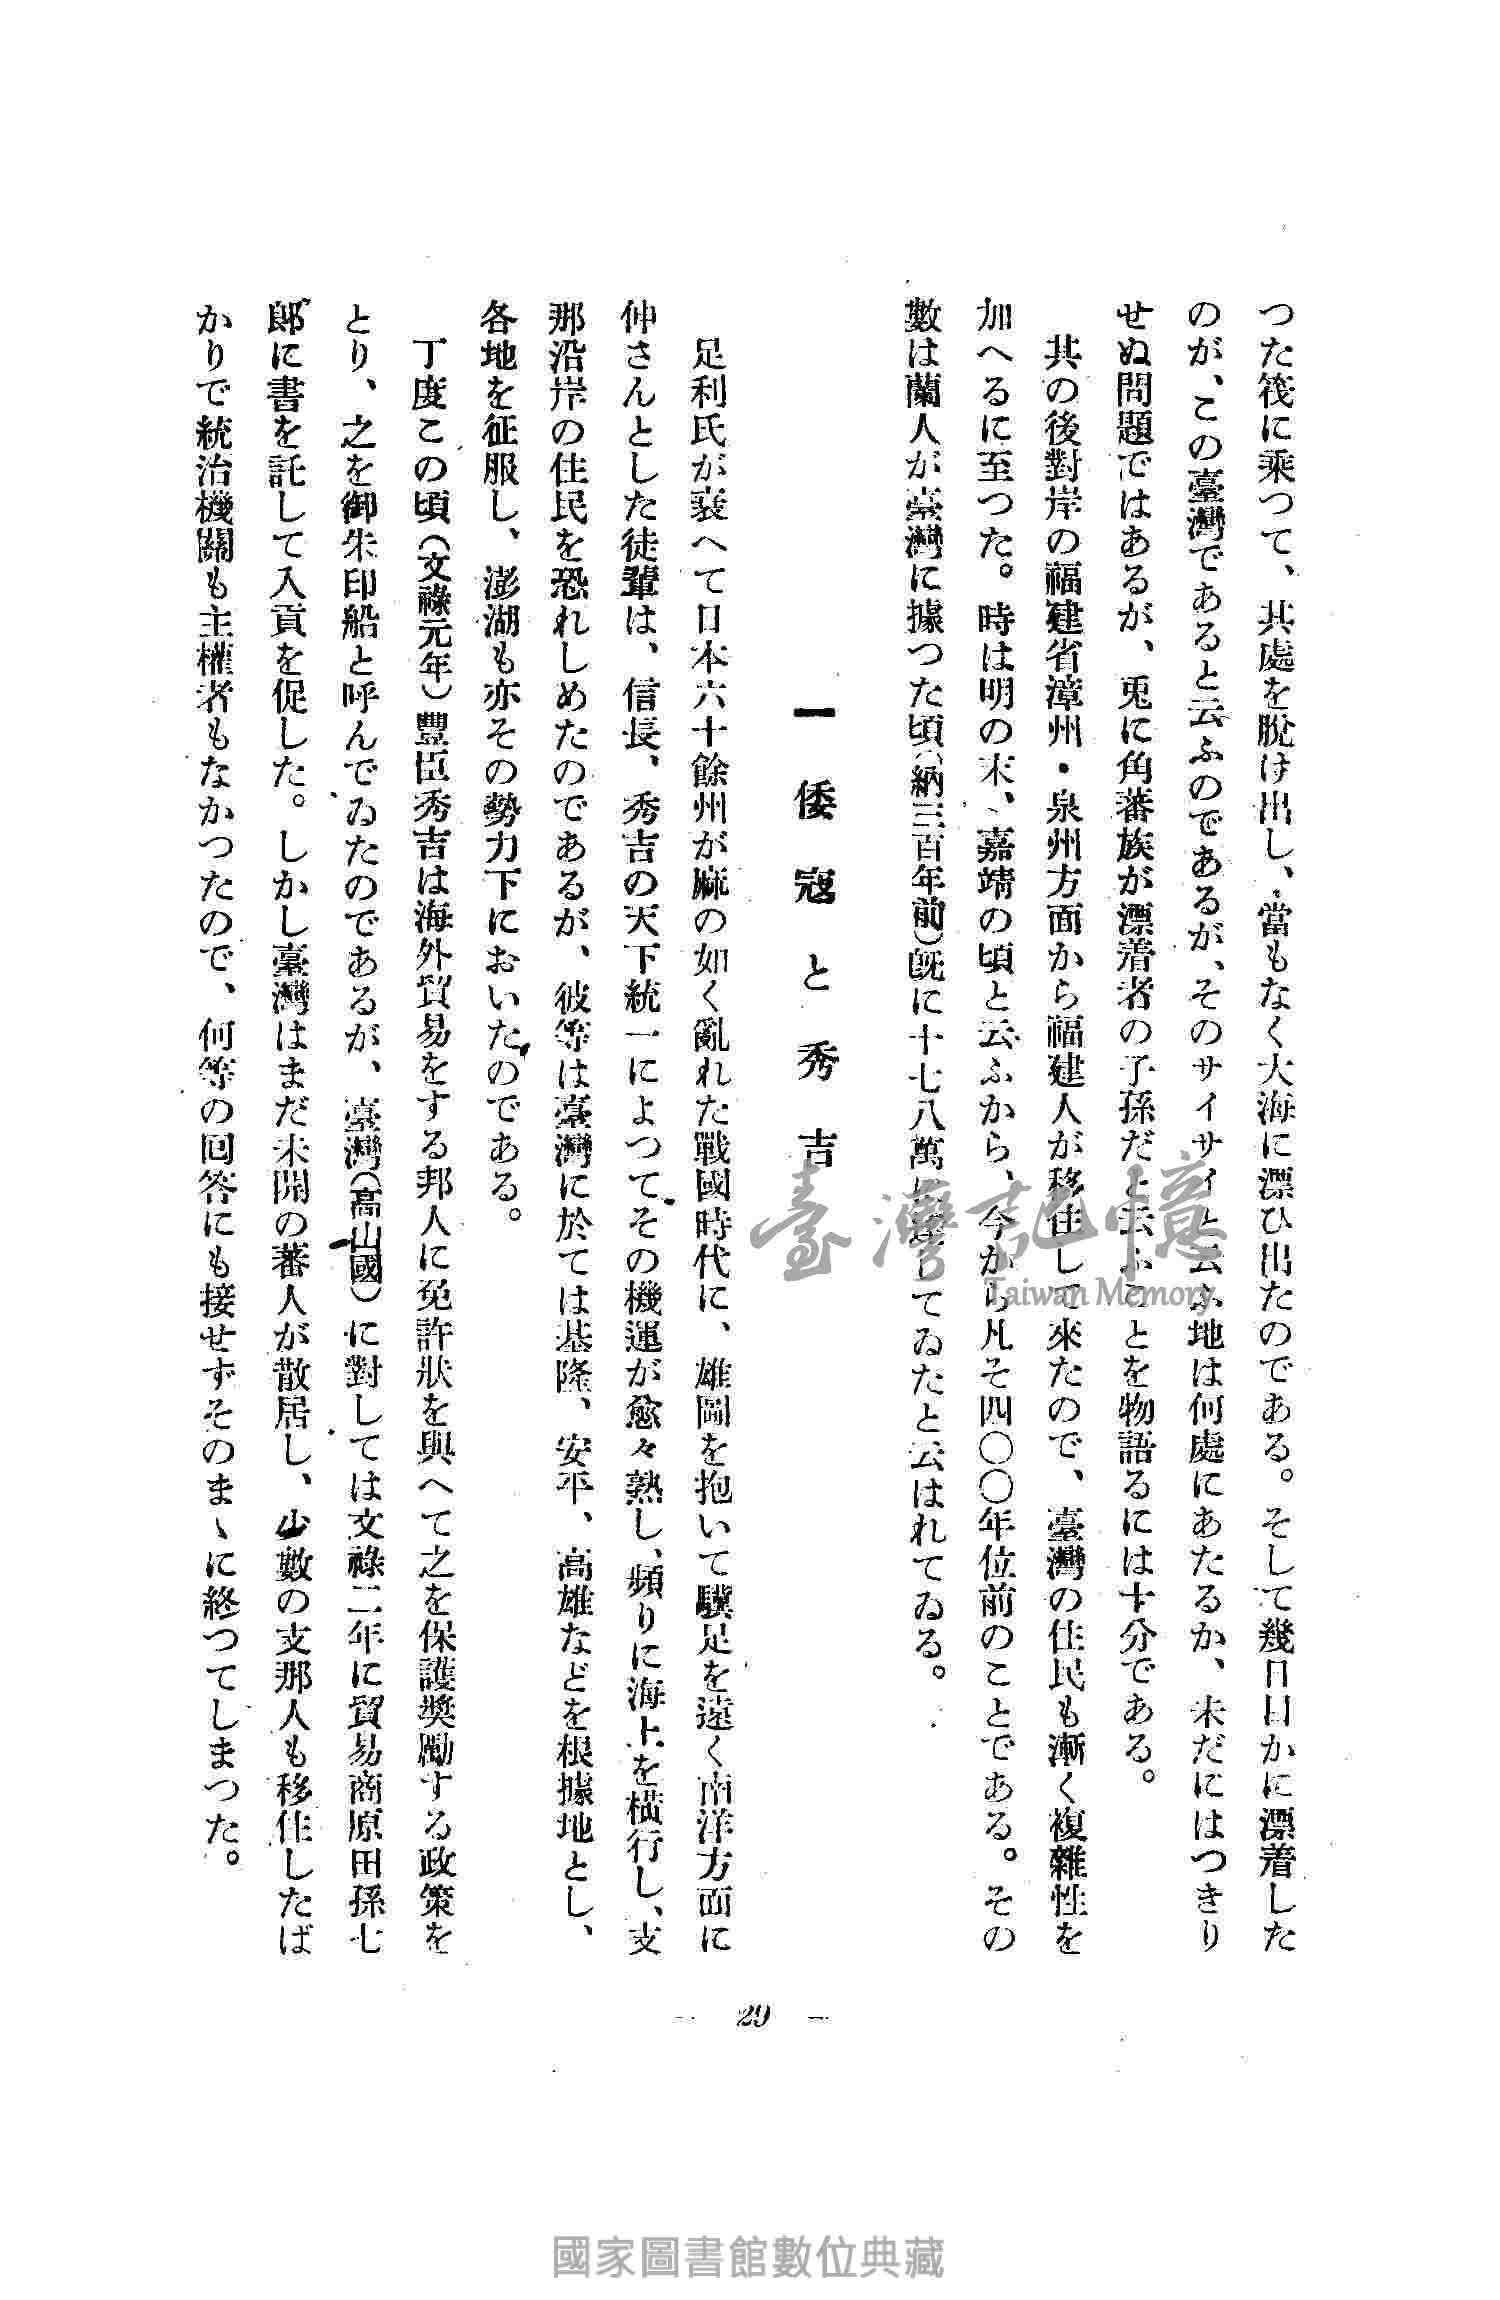 つた筏に乘つて、其處を脫け出し、當もなく大海に漂ひ出たのである。そして幾日目かに漂着した
のが、この臺灣であると云ふのであるが、そのサイサイと云ふ地は何處にあたるか、未だにはつきり
せぬ問題ではあるが、兎に角蕃族が漂着者の子孫だと云ふことを物語るには十分である。
其の後對岸の福建省漳州・泉州方面から福建人が移住して來たので、臺灣の住民も漸く複雜性を
加へるに至つた。時は明の末、嘉靖の頃と云ふから、今から凡そ四〇〇年位前のことである。その
數は蘭人が臺灣に據つた頃（納三百年前）既に十七八萬に達してゐたと云はれてゐる。
一 倭寇と秀吉
足利氏が衰へて日本六十餘州が麻の如く亂れた戰國時代に、雄圖を抱いて驥足を遠く南洋方面に
伸さんとした徒輩は、信長、秀吉の天下統一によつてその機運が愈々熟し、頻りに海上を橫行し、支
那沿岸の住民を恐れしめたのであるが、彼等は臺灣に於ては基隆、安平、高雄などを根據地とし、
各地を征服し、澎湖も亦その勢力下においたのである。
丁度この頃（文祿元年）豐臣秀吉は海外貿易をする邦人に免許狀を與へて之を保護奬勵する政策を
とり、之を御朱印船と呼んでゐたのであるが、臺灣（高山國）に對しては文祿二年に貿易商原田孫七
郎に書を託して入貢を促した。しかし臺灣はまだ未開の蕃人が散居し、少數の支那人も移住したば
かりで統治機關も主權者もなかつたので、何等の回答にも接せずそのまゝに終つてしまつた。
— 29 —
臺灣記憶
Taiwan Memory
國家圖書館數位典藏